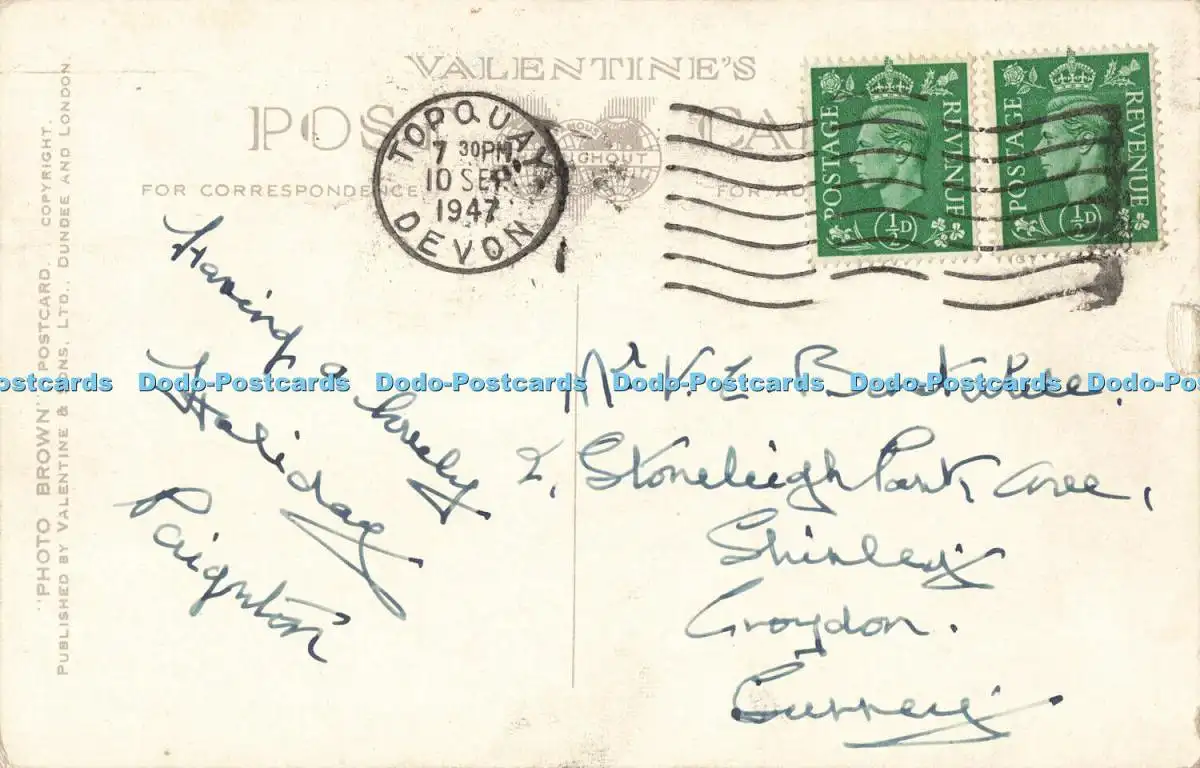 VALENTINE'S
POST CA
FOR CORRESPONDENCE
FOR AD
TORQUAY
7 30PM
10 SEP
1947
DEVON
POSTAGE REVENUE
½D
POSTAGE REVENUE
½D
"PHOTO BROWN" POSTCARD. COPYRIGHT.
PUBLISHED BY VALENTINE & SONS, LTD., DUNDEE AND LONDON.
Having
a lovely
Holiday
Paignton
Mr V. E
2, Stoneleigh Park Ave,
Shirley
Croydon.
Surrey
ostcards Dodo-Postcards Dodo-Postcards Dodo-Postcards Dodo-Postcards Dodo-Po